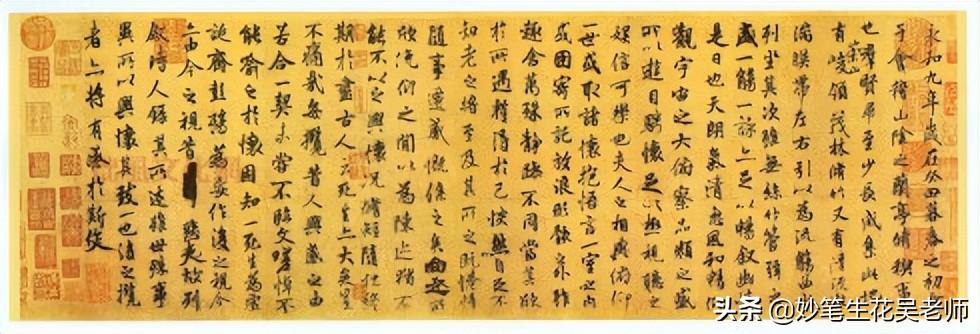 永和九年歲在癸丑暮春之初會
于會稽山陰之蘭亭脩稧事
也羣賢畢至少長咸集此地
有崇山峻領茂林脩竹又有清流激
湍暎帶左右引以為流觴曲水
列坐其次雖無絲竹管弦之
盛一觴一詠亦足以暢敘幽情
是日也天朗氣清惠風和暢仰
觀宇宙之大俯察品類之盛
所以遊目騁懷足以極視聽之
娛信可樂也夫人之相與俯仰
一世或取諸懷抱悟言一室之內
或因寄所託放浪形骸之外雖
趣舍萬殊靜躁不同當其欣
於所遇蹔得於己怏然自足不
知老之將至及其所之既惓情
隨事遷感慨係之矣向之所
欣俛仰之閒以為陳迹猶不
能不以之興懷況脩短隨化終
期於盡古人云死生亦大矣豈
不痛哉每攬昔人興感之由
若合一契未嘗不臨文嗟悼不
能喻之於懷固知一死生為虛
誕齊彭殤為妄作後之視今
亦由今之視昔悲夫故列
敘時人錄其所述雖世殊事
異所以興懷其致一也後之攬
者亦將有感於斯文
头条 @妙笔生花吴老师